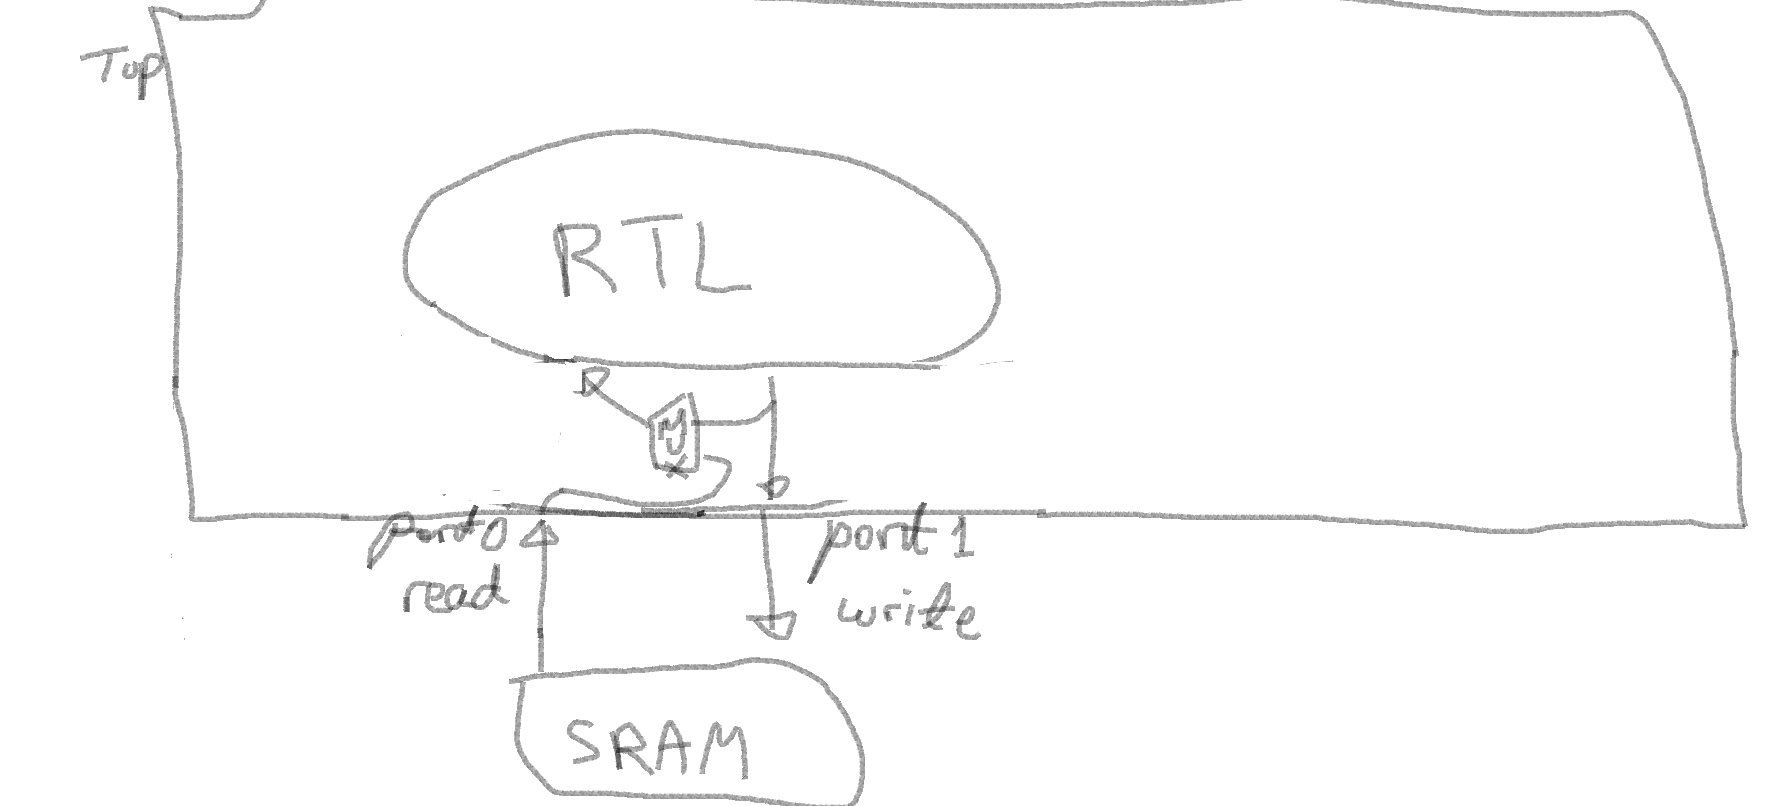 Top
RTL
MUX
port 0
read
port 1
write
SRAM